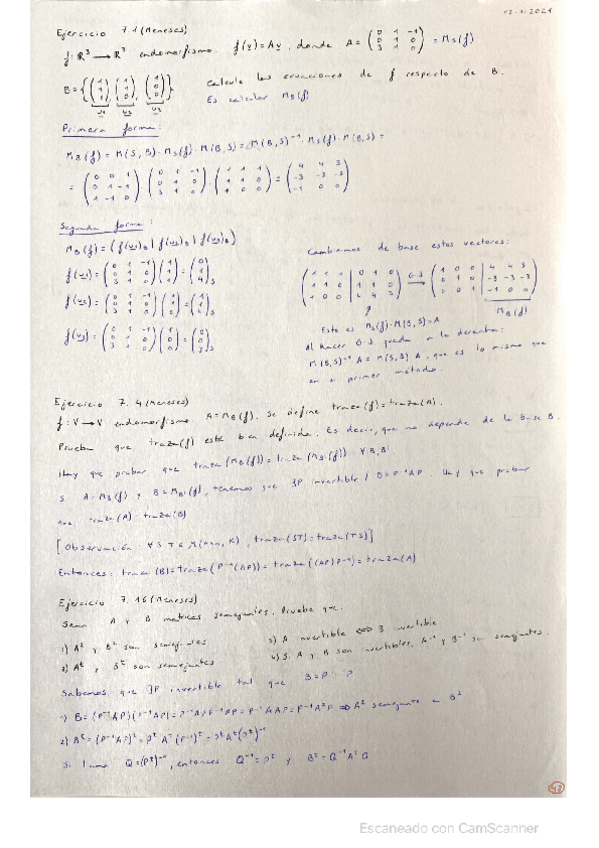 12-1-2021
Ejercicio 7.1 (Meneses)
f: R³ → R³ endomorfismo. f(v)=Av, donde A = ( 0 1 -1 / 0 1 0 / 3 1 0 ) = M_S(f)
B = { ( 1 1 1 ), ( 1 1 0 ), ( 1 0 0 ) } Calcule las ecuaciones de f respecto de B.
Es calcular M_B(f)
Primera forma:
M_B(f) = M(S,B) · M_S(f) · M(B,S) = M(B,S)⁻¹ · M_S(f) · M(B,S) =
= ( 0 0 1 / 0 1 -1 / 1 -1 0 ) · ( 0 1 -1 / 0 1 0 / 3 1 0 ) · ( 1 1 1 / 1 1 0 / 1 0 0 ) = ( 4 4 3 / -3 -3 -3 / -1 0 0 )
Segunda forma:
M_B(f) = (f(u₁)_B | f(u₂)_B | f(u₃)_B)
f(u₁) = ( 0 1 -1 / 0 1 0 / 3 1 0 ) ( 1 1 1 ) = ( 0 1 4 )_S
f(u₂) = ( 0 1 -1 / 0 1 0 / 3 1 0 ) ( 1 1 0 ) = ( 1 1 4 )_S
f(u₃) = ( 0 1 -1 / 0 1 0 / 3 1 0 ) ( 1 0 0 ) = ( 0 0 3 )_S
Cambiamos de base estos vectores:
( 1 1 1 | 0 1 0 / 1 1 0 | 1 1 0 / 1 0 0 | 4 4 3 ) G-S → ( 1 0 0 | 4 4 3 / 0 1 0 | -3 -3 -3 / 0 0 1 | -1 0 0 )
M_B(f)
Esto es M_S(f)·M(B,S)=A
Al hacer G-S queda a la derecha:
M(B,S)⁻¹ A = M(S,B) A, que es lo mismo que
en el primer método.
Ejercicio 7.4 (Meneses)
f: V → V endomorfismo A=M_B(f). Se define traza(f)=traza(A).
Prueba que traza(f) está bien definida. Es decir, que no depende de la base B.
Hay que probar que traza(M_B(f)) = traza(M_B'(f)) ∀B,B'
Si A=M_B(f) y B=M_B'(f), tenemos que ∃P invertible / B=P⁻¹AP. Hay que probar
que traza(A)=traza(B)
[Observación ∀ S,T ∈ M(n×n, K), traza(ST)=traza(TS)]
Entonces: traza(B)=traza(P⁻¹(AP))=traza((AP)P⁻¹)=traza(A)
Ejercicio 7.16 (Meneses)
Sean A y B matrices semejantes. Prueba que:
1) A² y B² son semejantes 3) A invertible ⟺ B invertible
2) Aᵗ y Bᵗ son semejantes 4) Si A y B son invertibles, A⁻¹ y B⁻¹ son semejantes.
Sabemos que ∃P invertible tal que B=P⁻¹AP
1) B²=(P⁻¹AP)(P⁻¹AP)=P⁻¹APP⁻¹AP=P⁻¹AAP=P⁻¹A²P ⟹ A² semejante a B²
2) Bᵗ=(P⁻¹AP)ᵗ=Pᵗ Aᵗ (P⁻¹)ᵗ=PᵗAᵗ(Pᵗ)⁻¹
Si llamo Q=(Pᵗ)⁻¹, entonces Q⁻¹=Pᵗ y Bᵗ=Q⁻¹AᵗQ
Escaneado con CamScanner